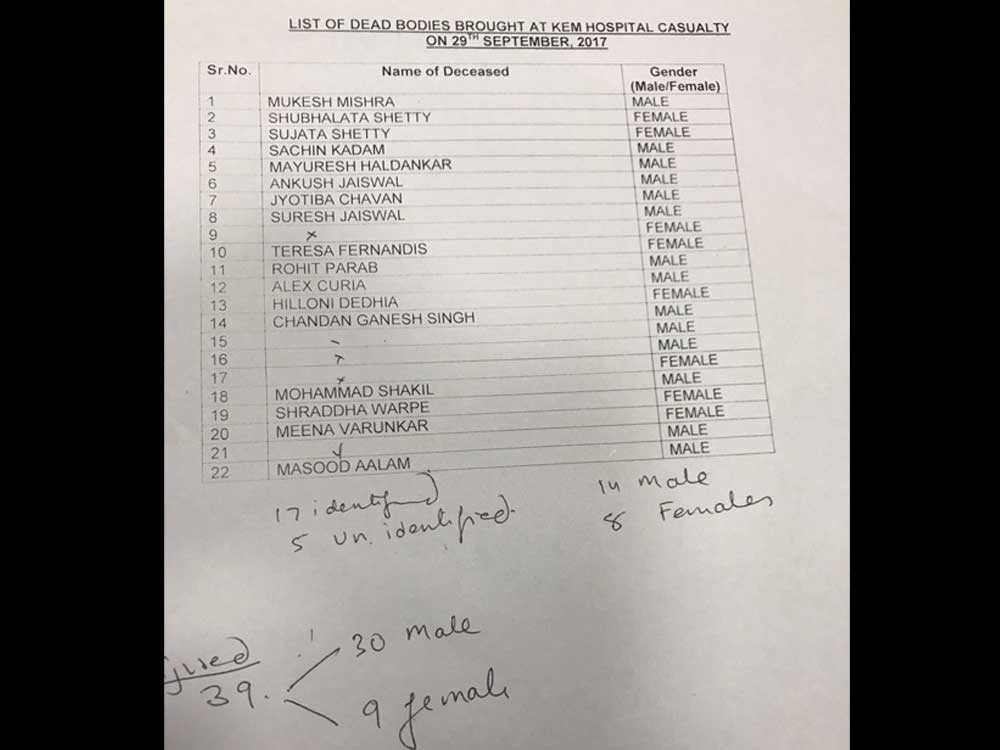 LIST OF DEAD BODIES BROUGHT AT KEM HOSPITAL CASUALTY
ON 29TH SEPTEMBER, 2017
Sr.No. Name of Deceased Gender
(Male/Female)
1 MUKESH MISHRA MALE
2 SHUBHALATA SHETTY FEMALE
3 SUJATA SHETTY FEMALE
4 SACHIN KADAM MALE
5 MAYURESH HALDANKAR MALE
6 ANKUSH JAISWAL MALE
7 JYOTIBA CHAVAN MALE
8 SURESH JAISWAL MALE
9 x FEMALE
10 TERESA FERNANDIS FEMALE
11 ROHIT PARAB MALE
12 ALEX CURIA MALE
13 HILLONI DEDHIA FEMALE
14 CHANDAN GANESH SINGH MALE
15 MALE
16 MALE
17 x FEMALE
18 MOHAMMAD SHAKIL MALE
19 SHRADDHA WARPE FEMALE
20 MEENA VARUNKAR FEMALE
21 MALE
22 MASOOD AALAM MALE
17 identified 14 male
5 un.identified. 8 Females
jured 30 male
39.
9 female